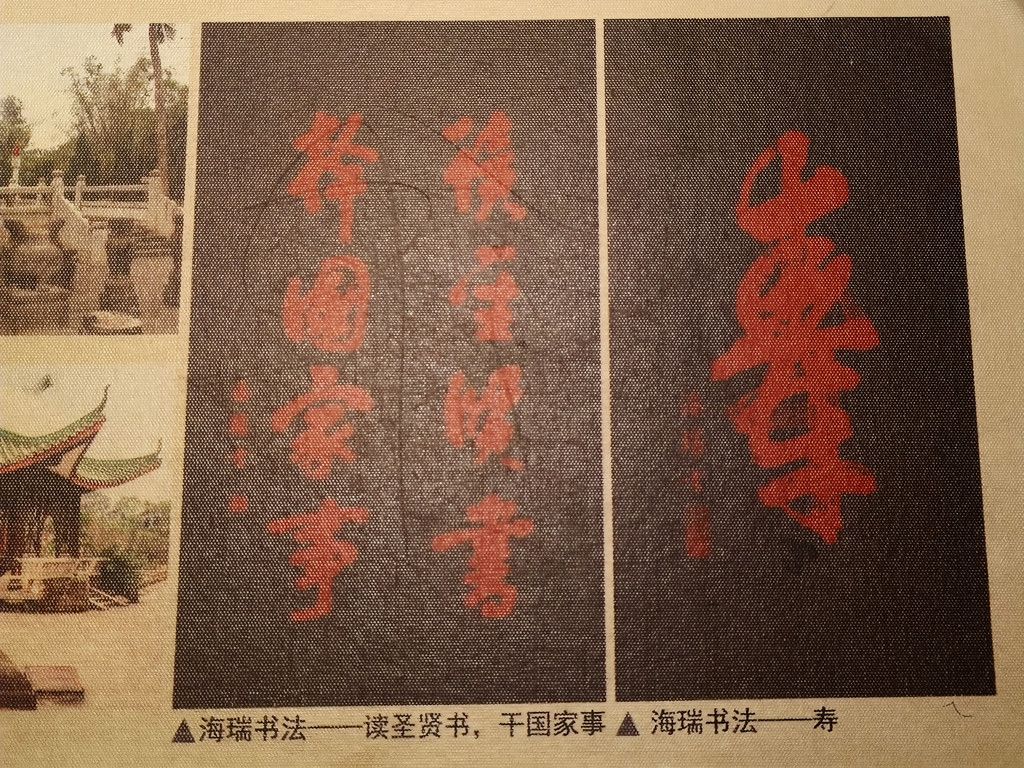 讀聖賢書
幹國家事
壽
▲海瑞书法——读圣贤书，干国家事
▲ 海瑞书法——寿